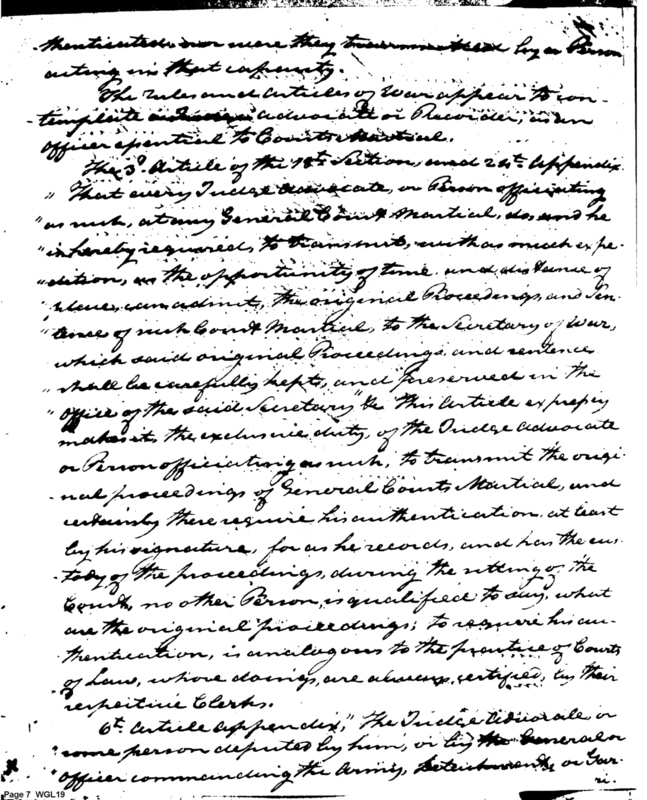 thenticated, nor were they transmitted by a Person
acting in that capacity.
The rules and articles of War appear to con-
-template a Judge advocate or Recorder, as an
Officer essential to Courts Martial.
The 3d. Article of the 18th. Section, and 24th. Appendix
" That every Judge Advocate, or Person officiating
" as such, at any General Court Martial, do, and he
" is hereby required, to transmit, with as much expe-
" dition, as the opportunity of time and distance of
" place, can admit, the original Proceedings, and Sen-
" tence of such Court Martial, to the Secretary of War,
" which said original Proceedings, and sentence
" shall be carefully kept, and preserved in the
" Office of the said Secretary" &c This Article expressly
makes it, the exclusive duty, of the Judge Advocate
or Person officiating as such, to transmit the origi-
nal proceedings of General Courts Martial, and
certainly there require his authentication, at least
by his signature, for as he records, and has the cus-
-tody of the proceedings, during the sitting of the
Court, no other Person, is qualified to say, what
are the original proceedings; to require his au-
-thentication, is analogous to the practice of Courts
of Law, whose doings, are always, certified, by their
respective Clerks.
6th. Article Appendix, "The Judge Advocate or
" some person deputed by him, or by the General or
" Officer commanding the Army, Detachment, or Gar-
ri-
Page 7 WGL19